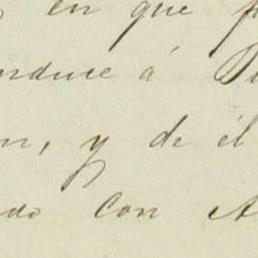 en que
nduce á
n, y de él
do con